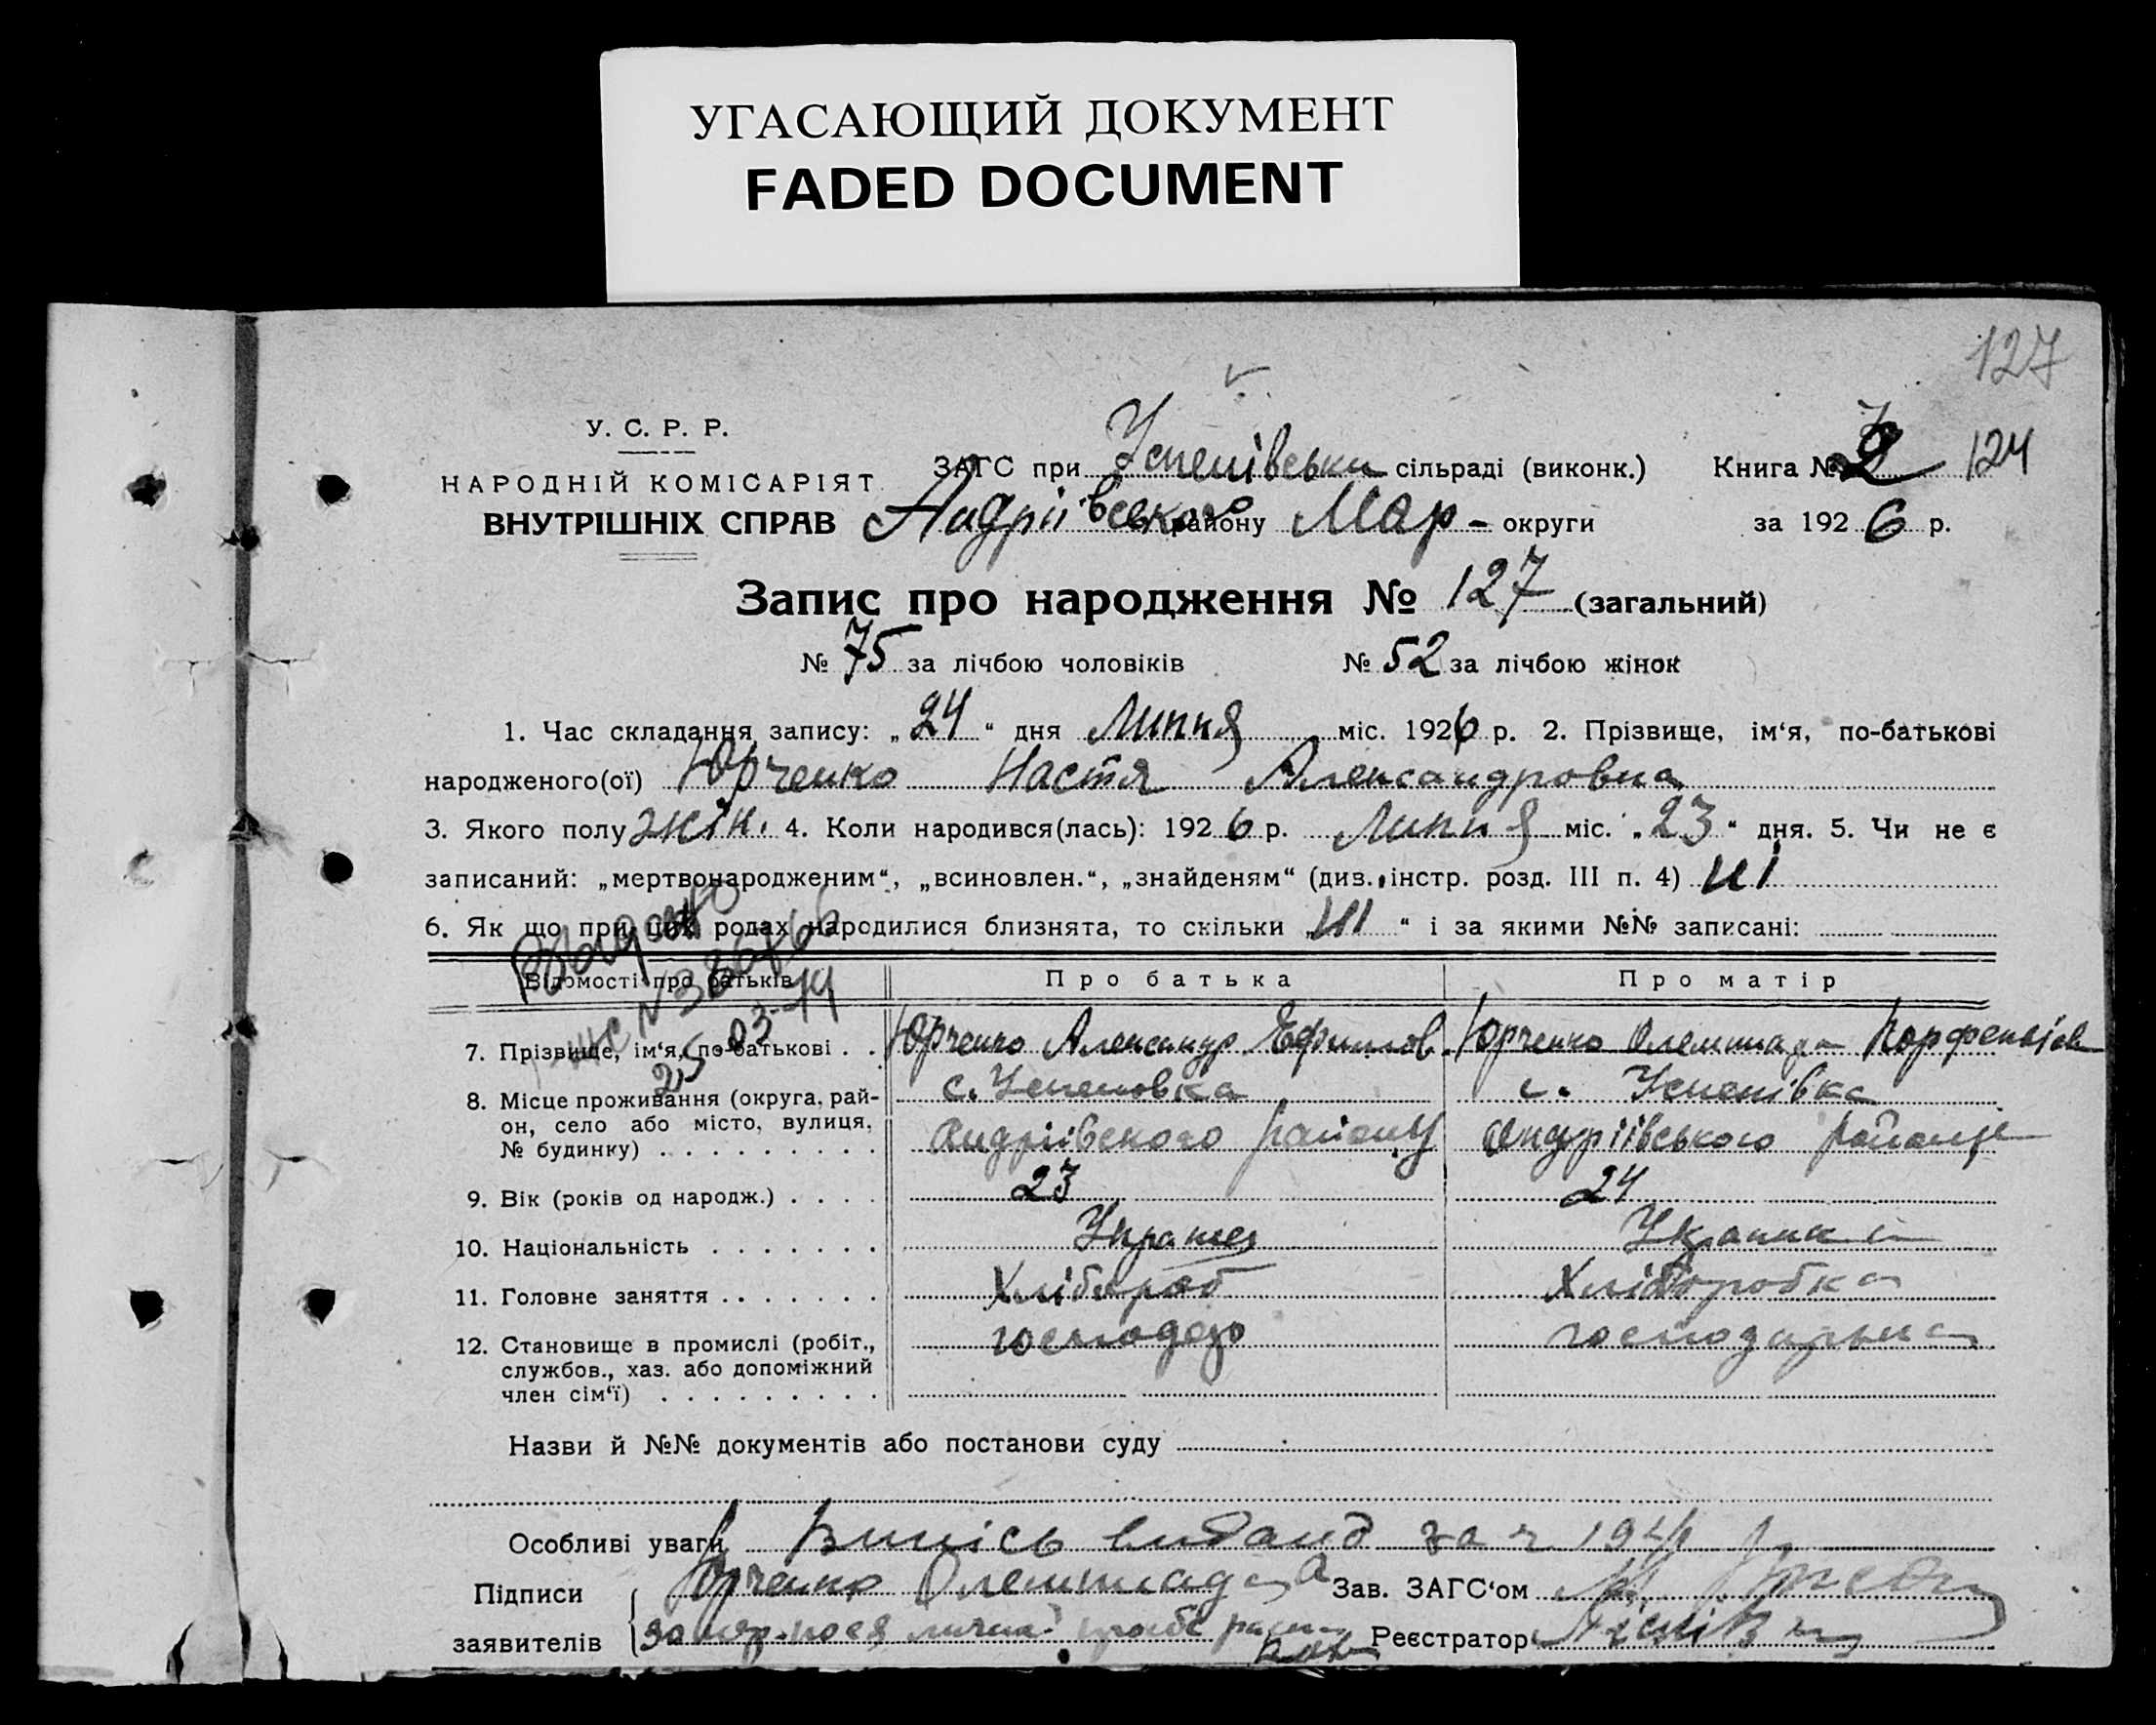 УГАСАЮЩИЙ ДОКУМЕНТ
FADED DOCUMENT
127
У. С. Р. Р.
НАРОДНІЙ КОМІСАРІЯТ
ВНУТРІШНІХ СПРАВ
ЗАГС при Успенівськи сільраді (виконк.) Книга № 2 124
Андріївського району Мар - округи за 1926 р.
Запис про народження № 127 (загальний)
№ 75 за лічбою чоловіків № 52 за лічбою жінок
1. Час складання запису: „24“ дня Липня міс. 1926 р. 2. Прізвище, ім‘я, по-батькові
народженого(ої) Юрченко Настя Александровна
3. Якого полу жін. 4. Коли народився(лась): 1926 р. Липня міс. „23“ дня. 5. Чи не є
записаний: „мертвонародженим“, „всиновлен.“, „знайденям“ (див. інстр. розд. III п. 4) ні
6. Як що при цих родах народилися близнята, то скільки „ні“ і за якими №№ записані:
Відомості про батьків Про батька Про матір
7. Прізвище, ім‘я, по-батькові . . Юрченко Александр Ефимов Юрченко Олемпиада
25-03-
8. Місце проживання (округа, рай- с. Успеновка с. Успенівка
он, село або місто, вулиця, Андріівского району Андріівського району
№ будинку) . . . . . . . . .
9. Вік (років од народж.) . . . . 23 24
10. Національність . . . . . . . Украинец Украинка
11. Головне заняття . . . . . . . Хлібороб Хліборобка
12. Становище в промислі (робіт., господар господарька
службов., хаз. або допоміжний
член сім‘ї) . . . . . . . . .
Назви й №№ документів або постанови суду
Особливі уваги Випісь видано за 1941
Підписи Юрченко Олемпиада Зав. ЗАГС‘ом
заявителів Реєстратор